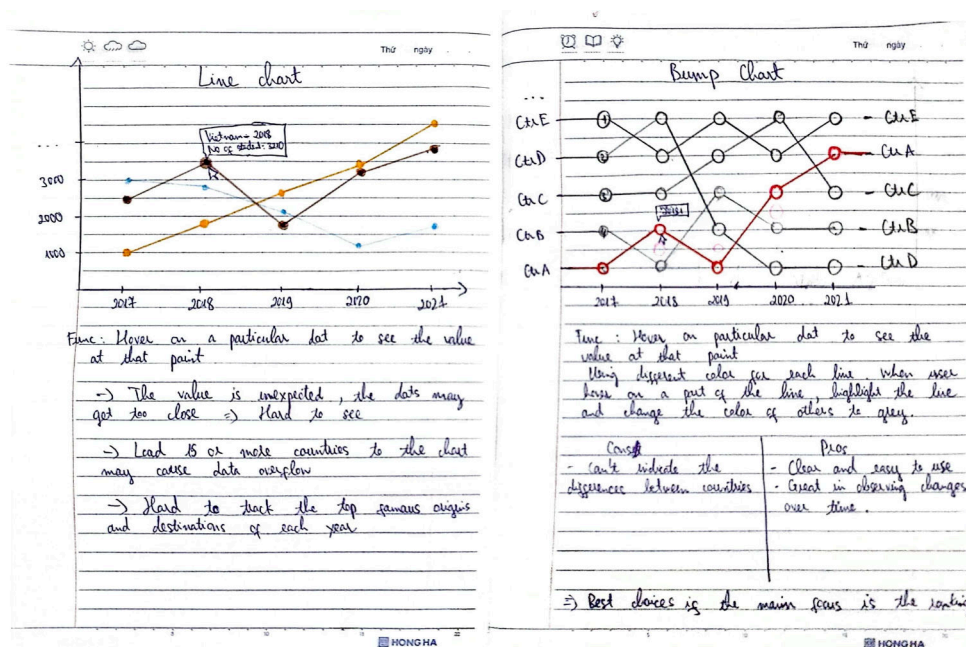 Thứ ngày
Line chart
Vietnam - 2018
No of student: 3200
...
3000
2000
1000
2017
2018
2019
2120
2021
Func: Hover on a particular dot to see the value
at that point
-> The value is unexpected, the dots may
got too close => Hard to see
-> Load 15 or more countries to the chart
may cause data overflow
-> Hard to track the top famous origins
and destinations of each year
HONG HA
Thứ ngày
Bump Chart
...
Ctr E
Ctr D
Ctr C
Ctr B
Ctr A
- Ctr E
- Ctr A
- Ctr C
- Ctr B
- Ctr D
2017
2018
2019
2020
2021
Func: Hover on particular dot to see the
value at that point
Using different color for each line. When user
hover on a part of the line, highlight the line
and change the color of others to grey.
Cons
- Can't indicate the
differences between countries
Pros
- Clear and easy to use
- Great in observing changes
over time.
=> Best choices if the main focus is the
HONG HA